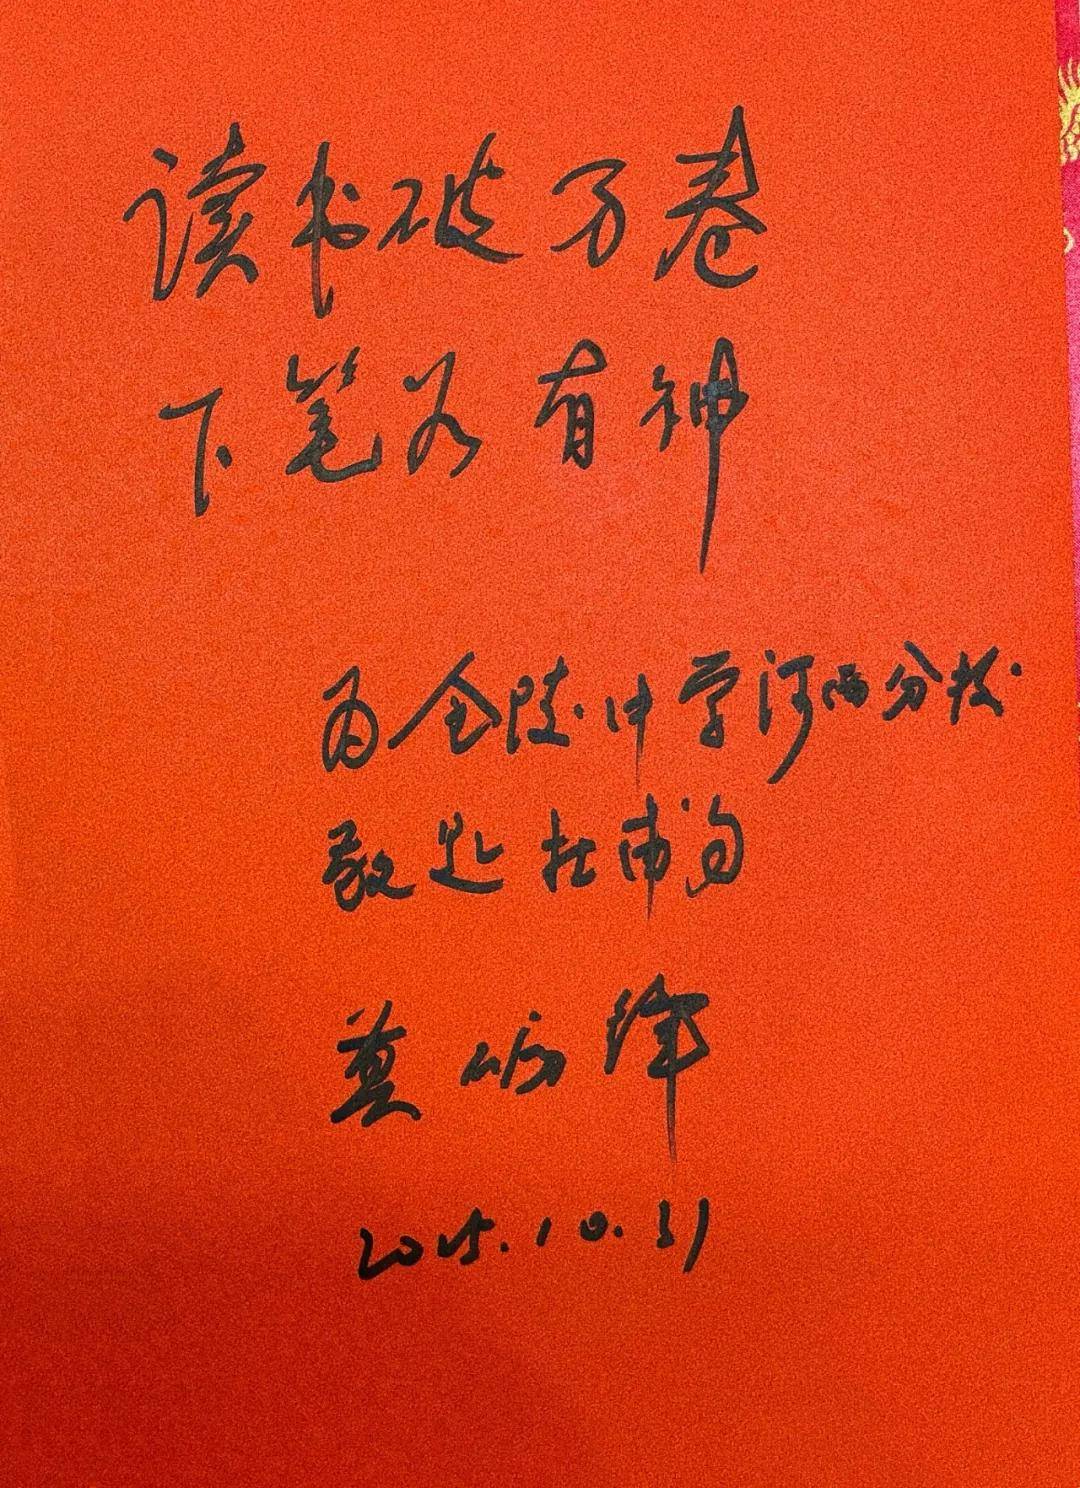 读书破万卷
下笔如有神
为金陵中学河西分校
敬题杜甫句
莫砺锋
2025.10.31